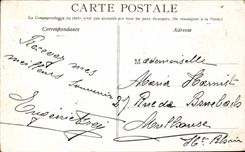 CARTE POSTALE
La Correspondance au recto n'est pas acceptée par tous les pays étrangers. (Se renseigner à la Poste).
Correspondance
Recevez mes
meilleurs souvenirs
Eugénie
Mademoiselle
Maria
27 Rue de
Mulhouse
Hte Alsace